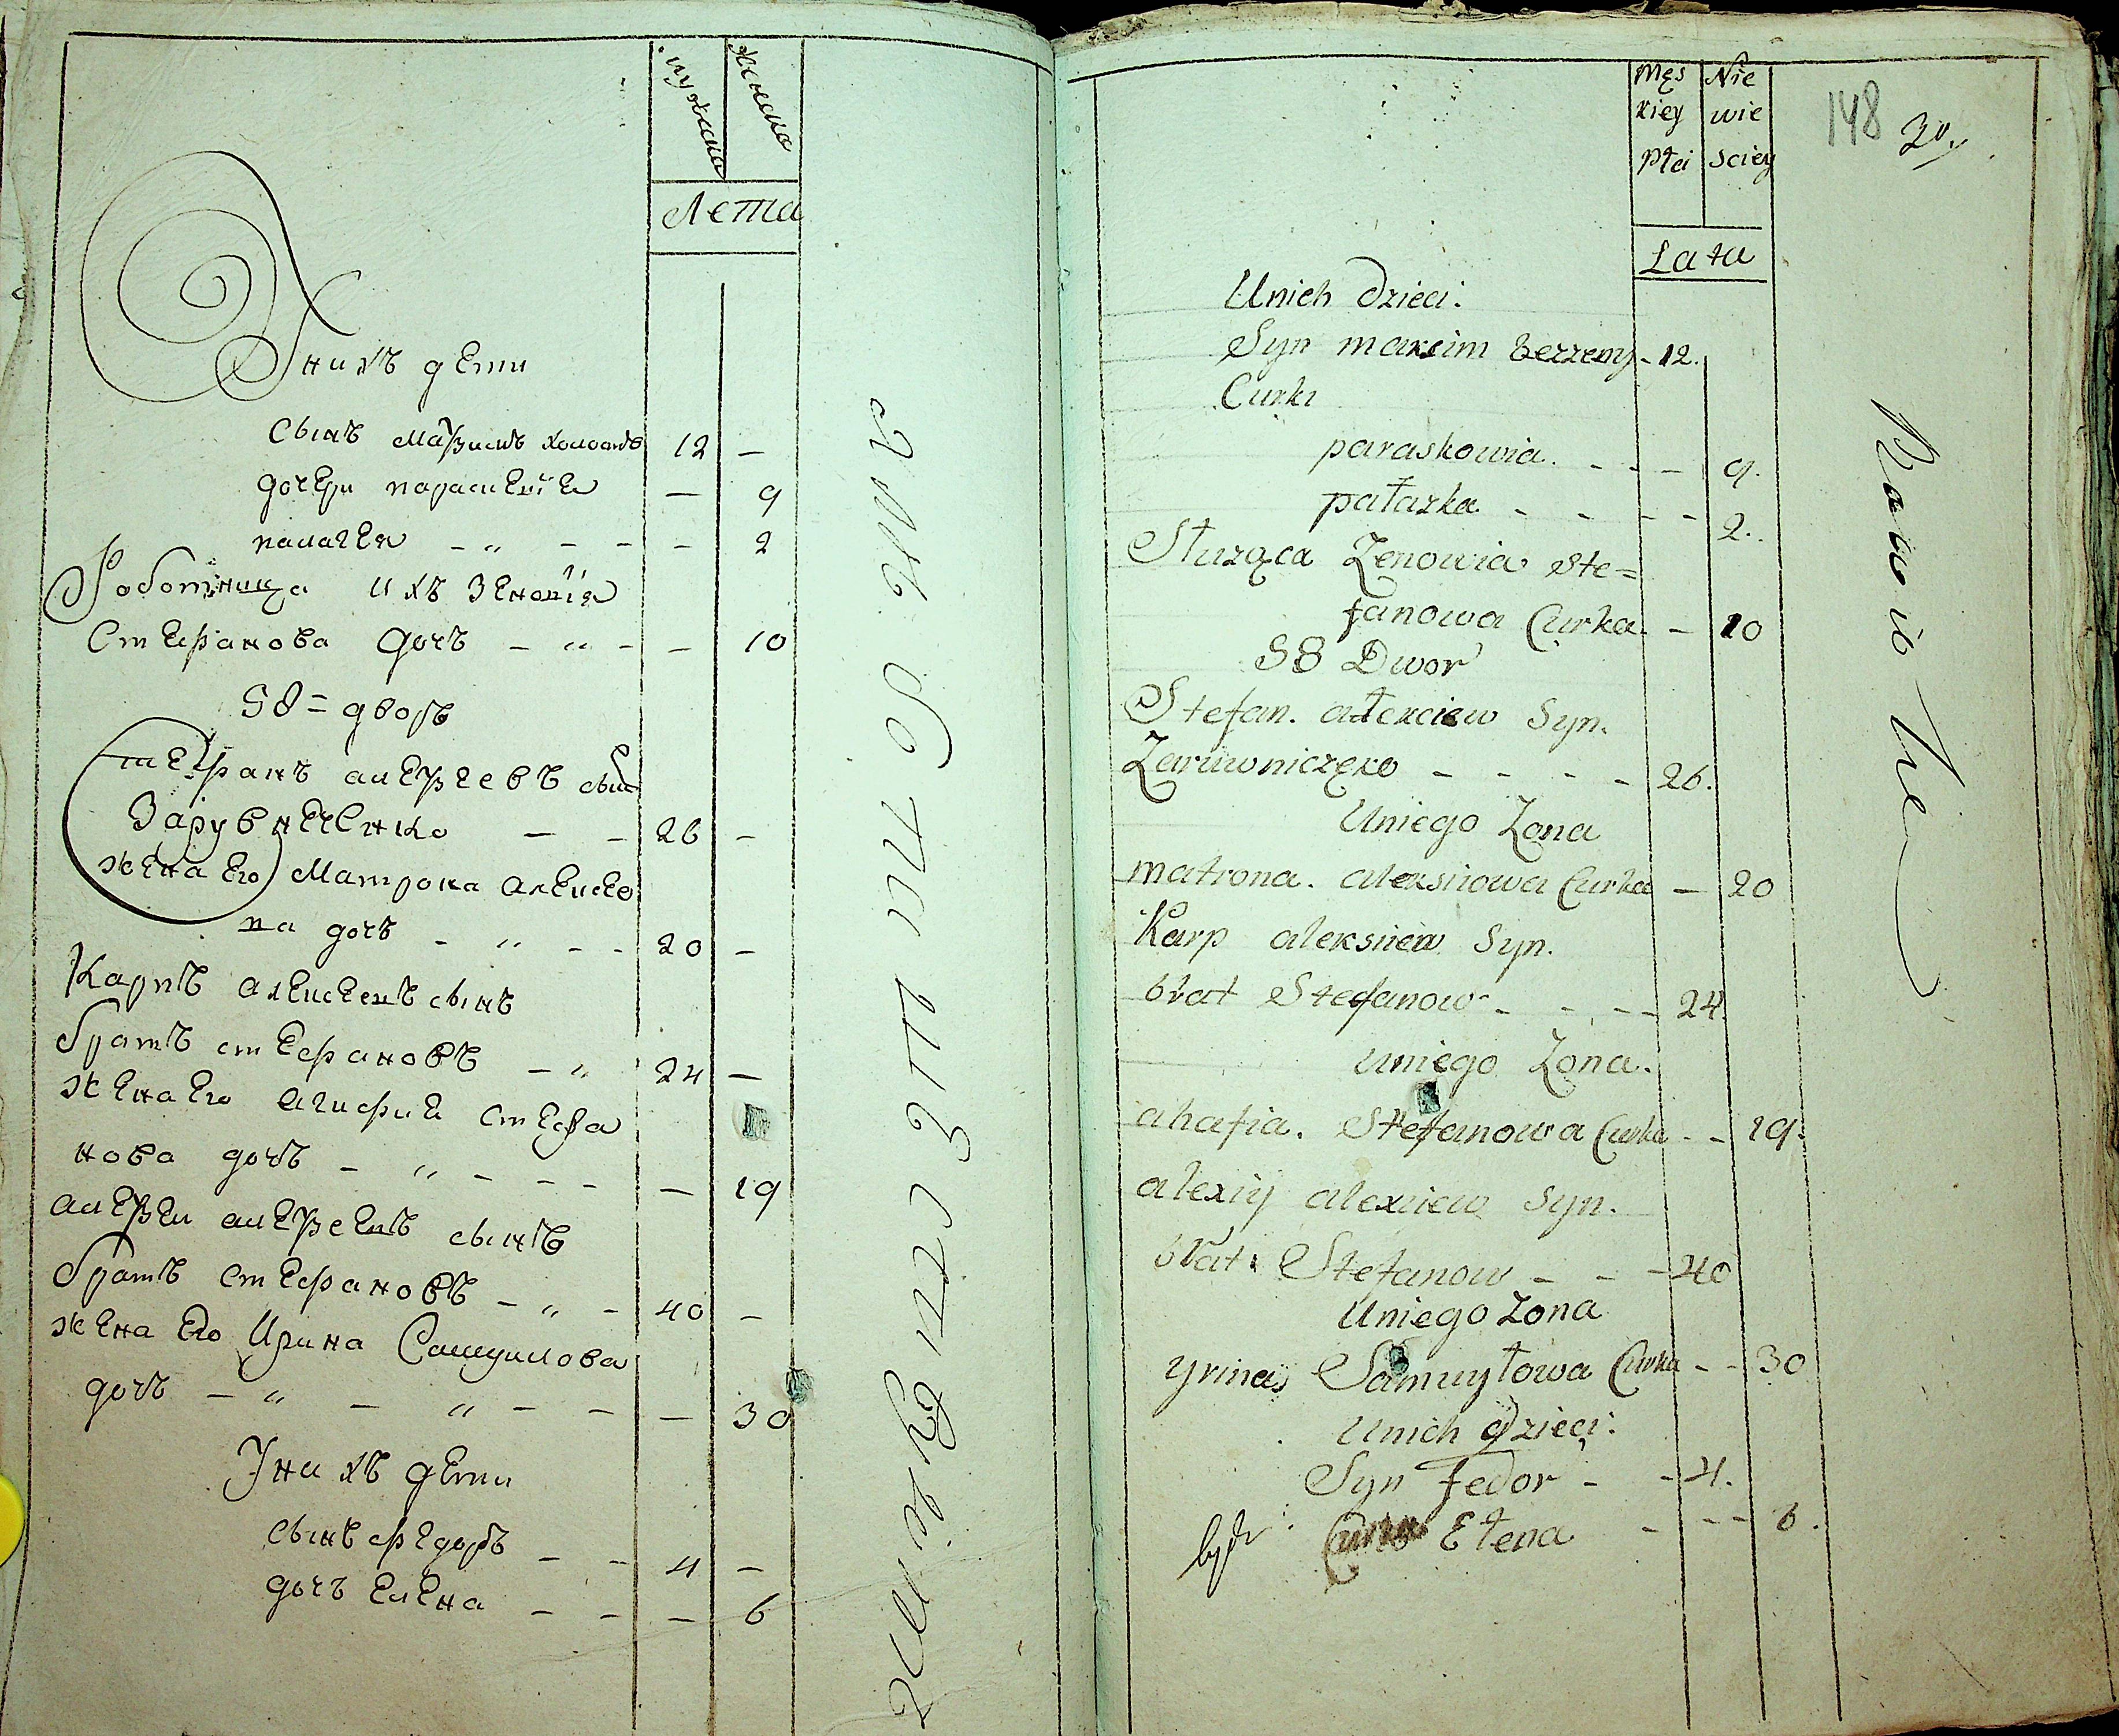 мужеска
женска
Лета
У нихъ дети
сынъ Маѯимъ холостъ 12 —
дочери параскевіе — 9
палагея - „ - - - 2
Роботница ихъ Зеновіѧ
Стефанова дочъ - „ - - 10
58 = дворъ
Стефанъ алеѯеевъ сынъ
Зарувнеченко - - 26 -
жена его Матрона алексее
ва дочъ - „ - - 20 -
Карпъ алексеевъ сынъ
братъ стефановъ - „ 24 —
жена его агафие стефа
нова дочъ - „ - - - — 19
алеѯеи алеѯеевъ сынъ
братъ стефановъ - „ - 40 -
жена его Ирина Самуилова
дочъ - „ - „ - - — 30
У нихъ дети
сынъ федоръ - - 4 -
дочъ елена - - - 6
Męs
kiey
Płci
Nie
wie
sciey
Lata
148
30
Unich dzieci:
Syn maxim bezzeny - 12.
Curki
paraskowia. - - - 9.
pałazka - - - - 2..
Służąca Zenowia Ste=
fanowa Curka. - 10
58 Dwor
Stefan. ałexciew Syn.
Zaruwniczęko - - - - 26.
Uniego Zona
matrona. alexsiiowa Curka - 20
Karp aleksiiew Syn.
brat Stefanow - - - - 24
uniego Zona.
ahafia. Stefanowa Curka - - 19.
alexiy alexiiew Syn.
brat Stefanow - - - 40
Uniego Zona
yrina Samuyłowa Curka - - 30
Unich dzieci:
Syn fedor - - 4.
Curka Ełena - - - 6.